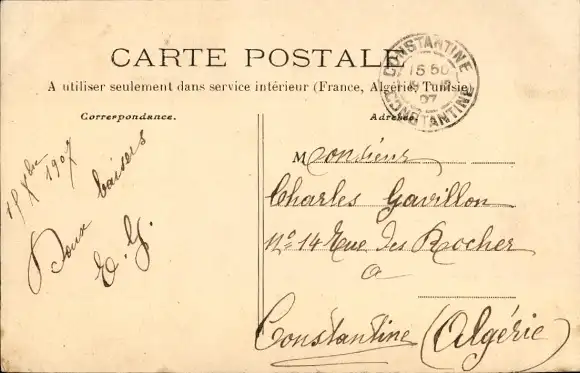 CARTE POSTALE
A utiliser seulement dans service intérieur (France, Algérie, Tunisie)
CONSTANTINE
15 50
07
CONSTANTINE
Correspondance.
Adresse.
Xbre 1907
Doux baisers
E. G.
Monsieur
Charles Gavillon
No 14 Rue des Rocher
a
Constantine (Algérie)